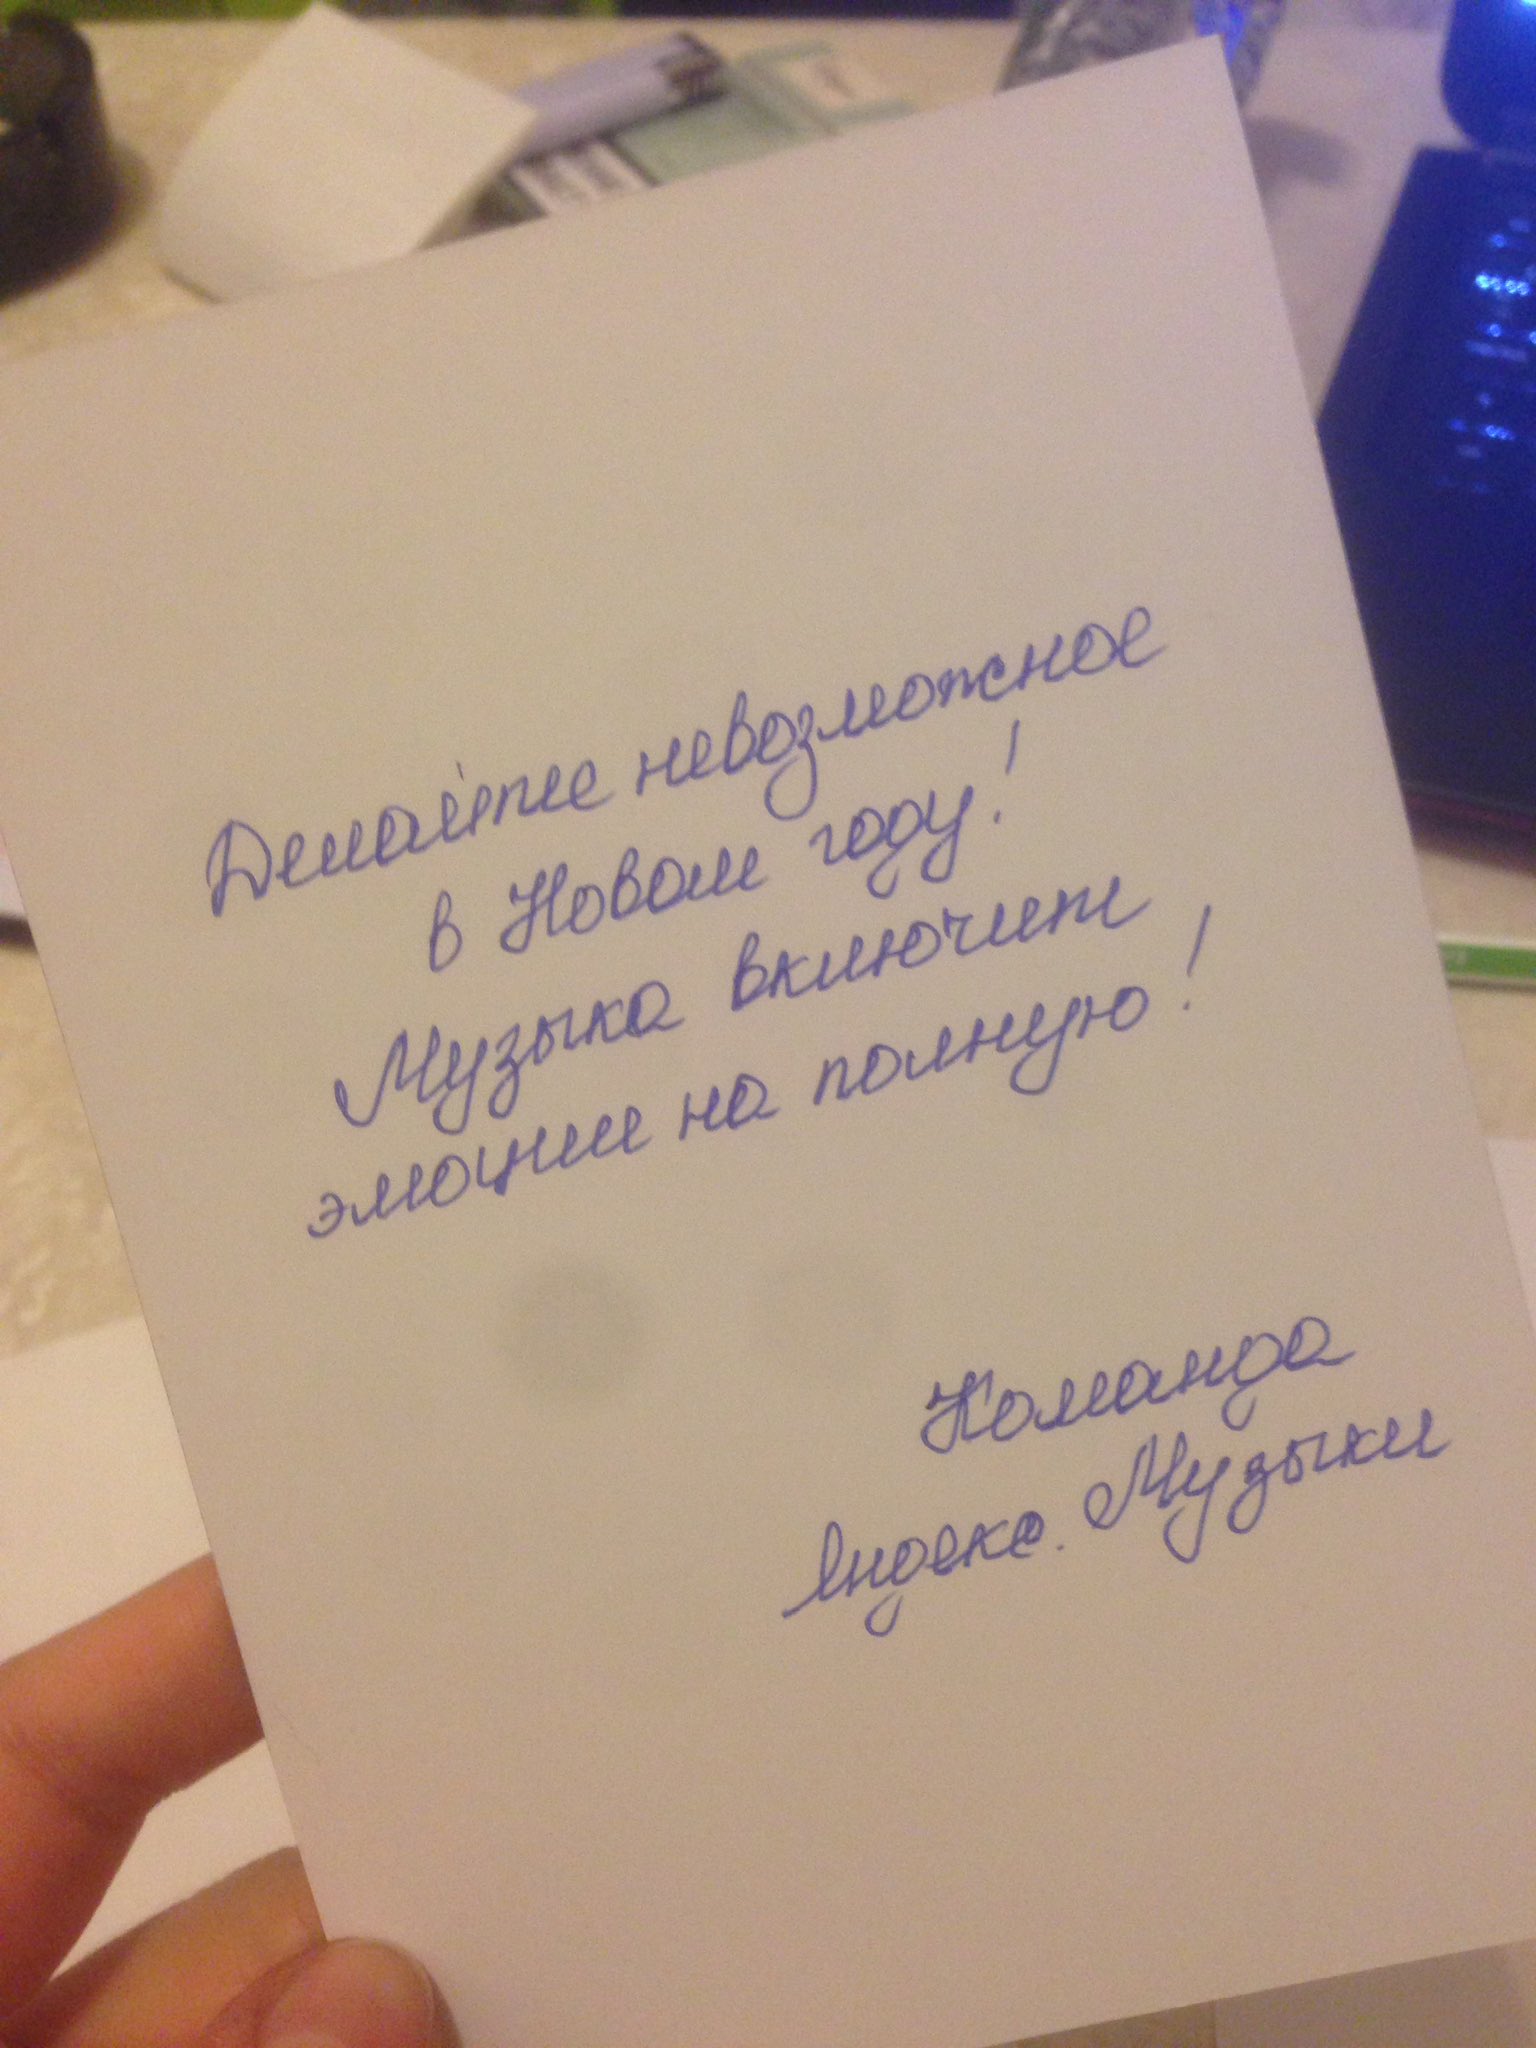 Делайте невозможное
в Новом году!
Музыка включит
эмоции на полную!
Команда
Яндекс.Музыки